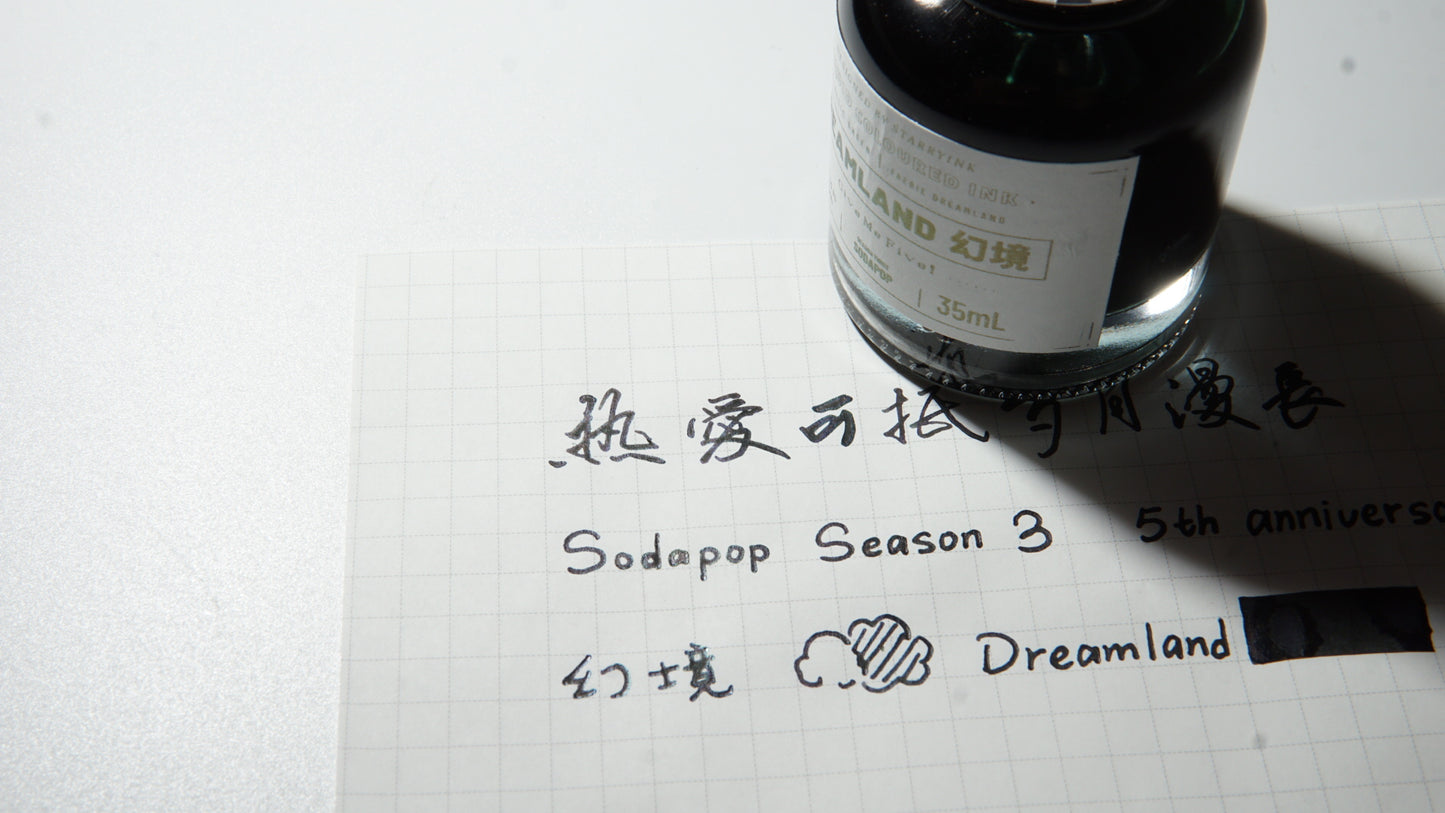 BY STARRYINK
COLOURED INK
FAERIE DREAMLAND
AMLAND 幻境
Give Me Five!
SODAPOP
35mL
热愛可抵岁月漫長
Sodapop Season 3 5th annivers
幻境 Dreamland